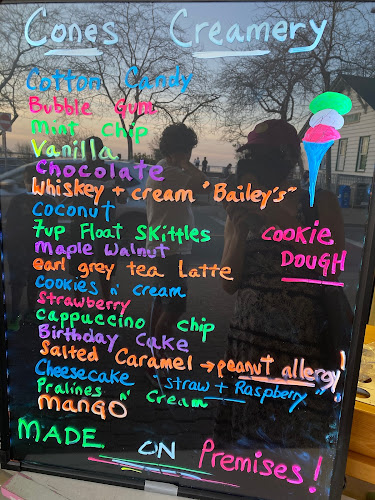 Cones Creamery
Cotton Candy
Bubble Gum
Mint Chip
Vanilla
Chocolate
Whiskey + cream "Bailey's"
Coconut
7up Float Skittles
Maple Walnut
earl grey tea Latte
Cookies n' cream
Strawberry
Cappuccino chip
Birthday Cake
Salted Caramel → peanut allergy!
Cheesecake "straw + Raspberry"
Pralines n' Cream
Mango
COOKIE
DOUGH
MADE ON Premises!